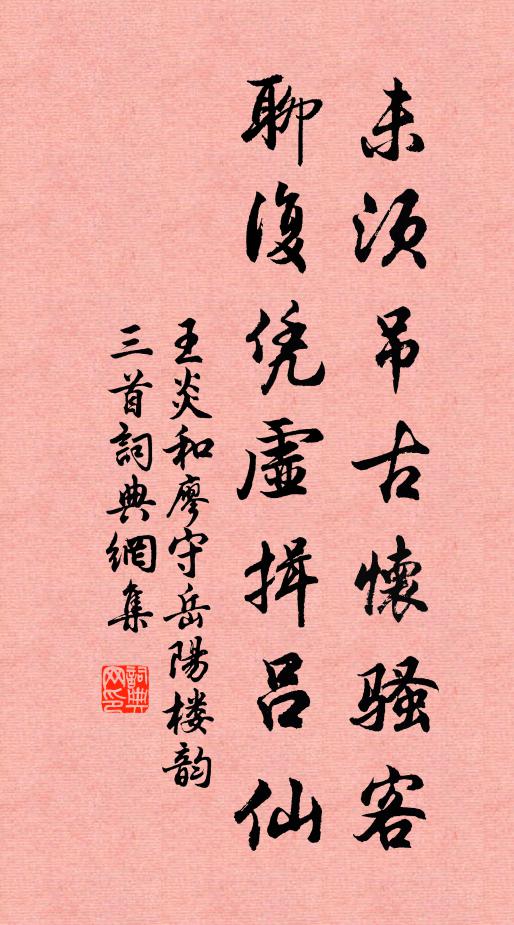 未须吊古懷骚客
聊復凭虚揖吕仙
王炎和廖守岳陽楼韵
三首詞典網集
詞典网印